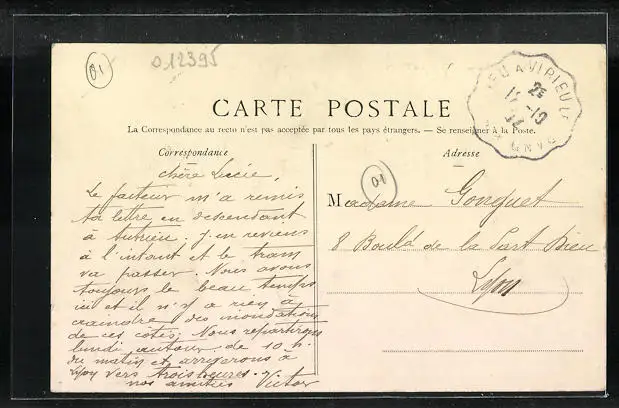 01
012395
CARTE POSTALE
La Correspondance au recto n'est pas acceptée par tous les pays étrangers. — Se renseigner à la Poste.
Correspondance
Adresse
chère Lucie,
Le facteur m'a remis
ta lettre en descendant
à J'en reviens
à l'instant et le tram
va passer. Nous avons
toujours le beau temps
ici et il n'y a rien à
craindre des inondations
de ces côtés. Nous repartirons
lundi autour de 10 h.
du matin et arriverons à
Lyon vers trois heures.
nos amitiés Victor
01
Madame Gonguet
8 Bould de la Part Dieu
Lyon
A VIRIEU
2E